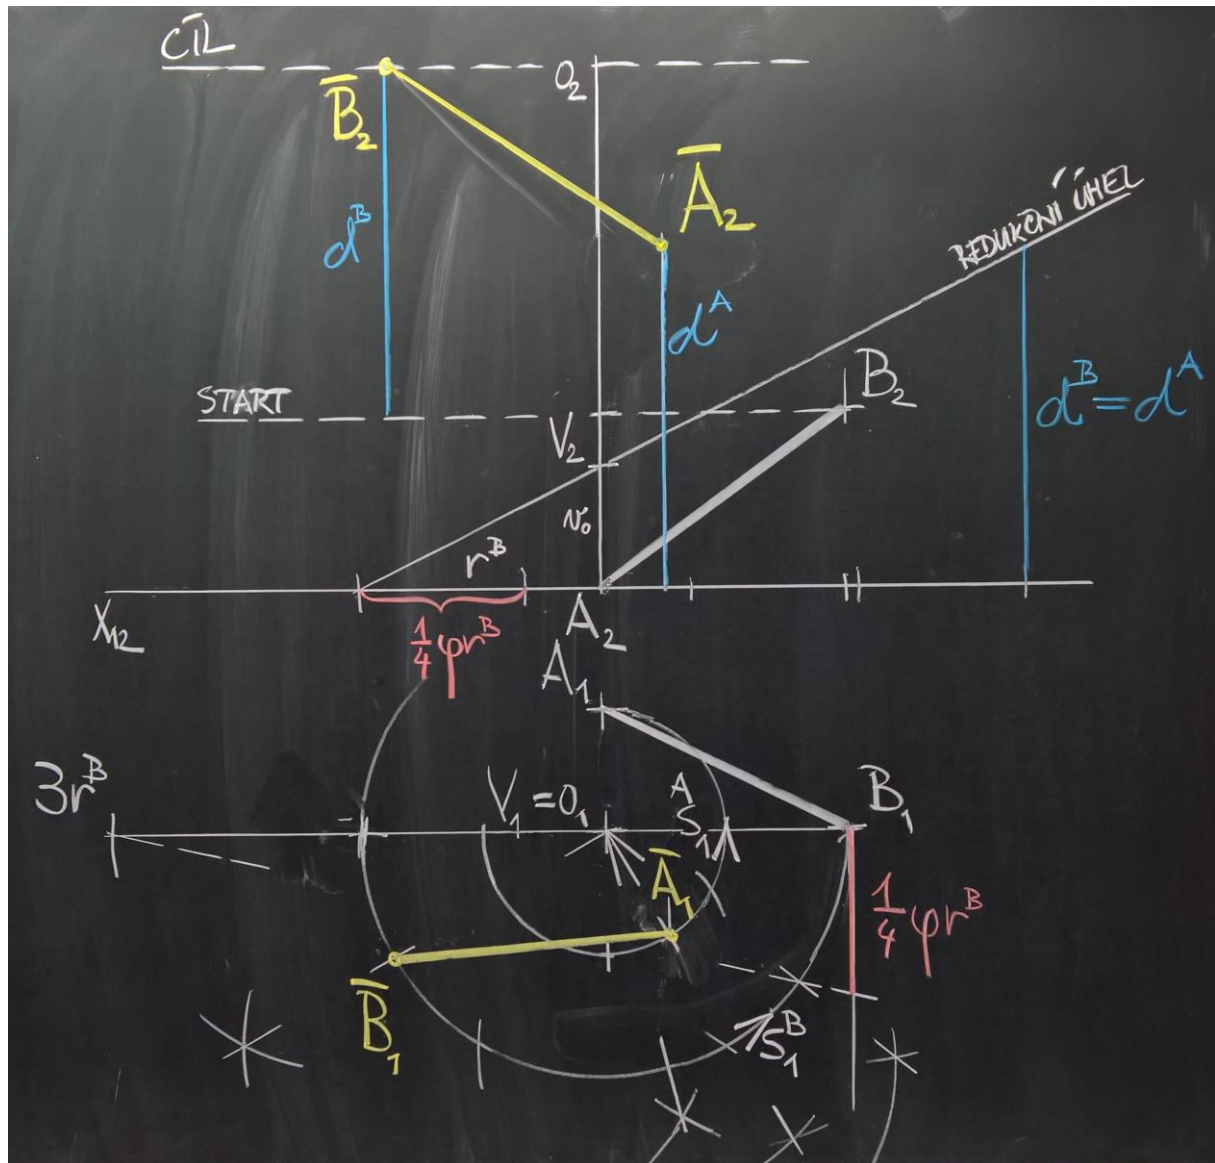 CÍL
O₂
B̅₂
A̅₂
REDUKČNÍ ÚHEL
dᴮ
dᴬ
B₂
START
dᴮ=dᴬ
V₂
v₀
rᴮ
X₁₂
A₂
¼φrᴮ
A₁
3rᴮ
V₁=O₁
S₁ᴬ
B₁
A̅₁
¼φrᴮ
B̅₁
S₁ᴮ